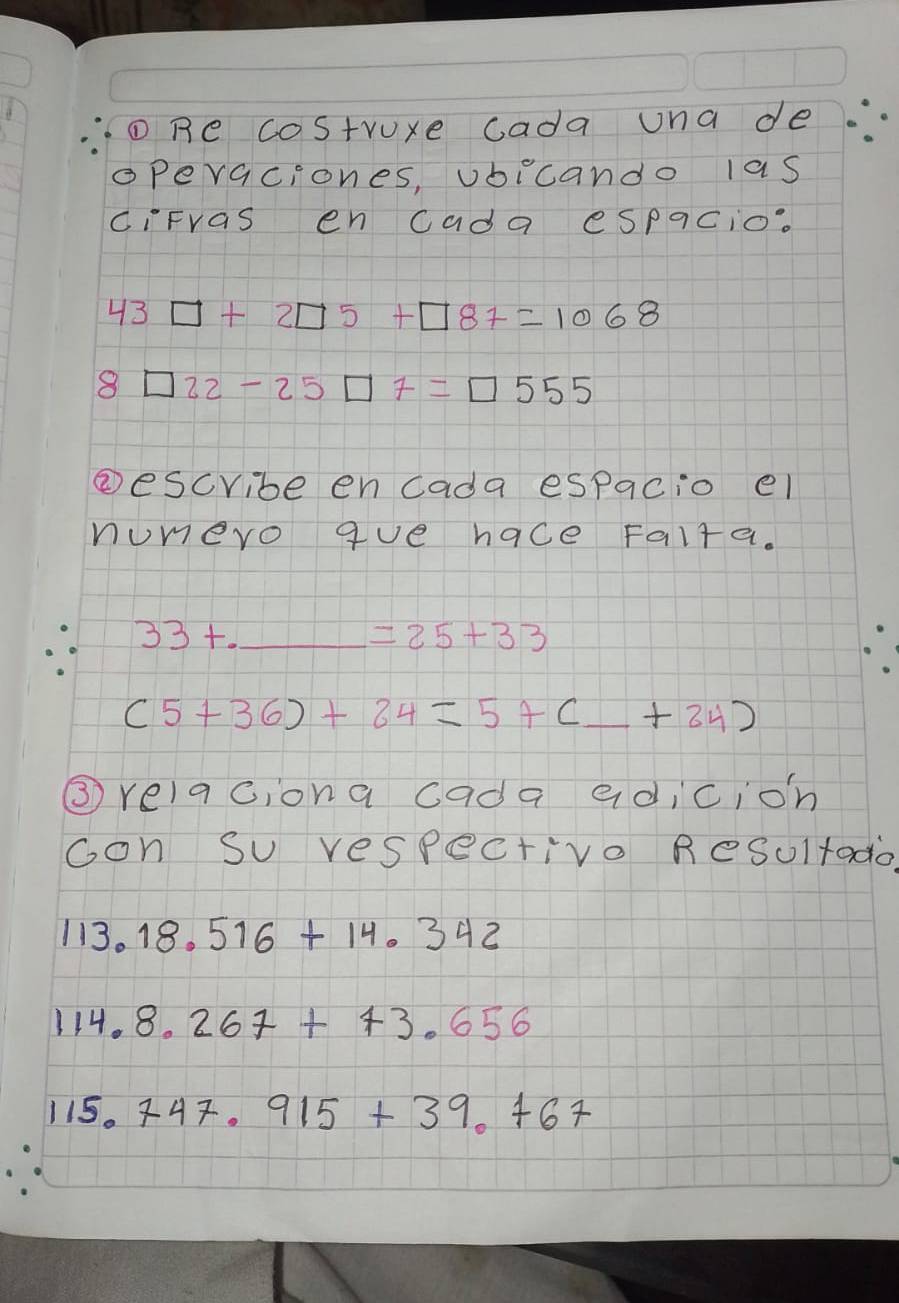 ① Re costruxe cada una de
operaciones, ubicando las
cifras en cada espacio:
43 □ + 2□5 + □87 = 1068
8 □22 - 25 □ 7 = □ 555
② escribe en cada espacio el
numero que hace Falta.
33 +. ____ = 25 + 33
(5 + 36) + 24 = 5 + ( __ + 24)
③ relaciona cada adición
con su respectivo Resultado.
113. 18.516 + 14.342
114. 8.267 + 73.656
115. 747.915 + 39.767